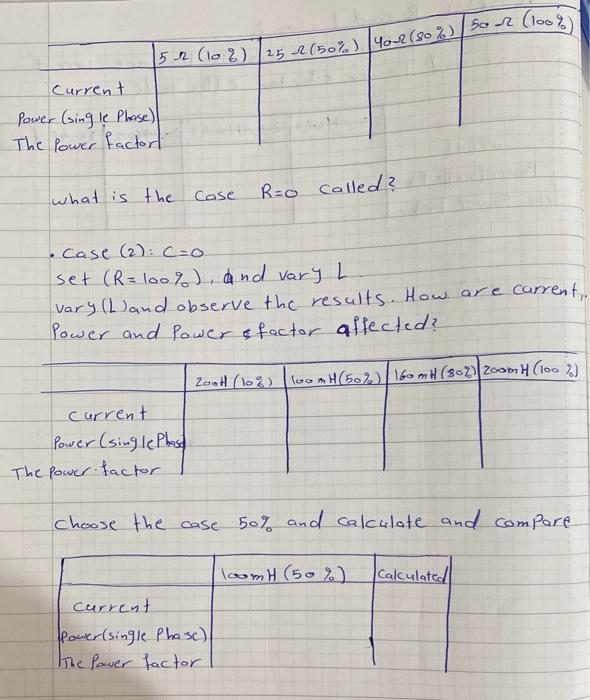 5 Ω (10%) 25 Ω (50%) 40 Ω (80%) 50 Ω (100%)
Current
Power (single Phase)
The Power factor
what is the case R=0 called?
• case (2): C=0
set (R=100%), and vary L
vary (L) and observe the results. How are current,
Power and Power factor affected?
20mH (10%) 100mH (50%) 160mH (80%) 200mH (100%)
Current
Power (single Phase)
The Power factor
choose the case 50% and calculate and compare
100mH (50%) Calculated
Current
Power (single Phase)
The Power factor